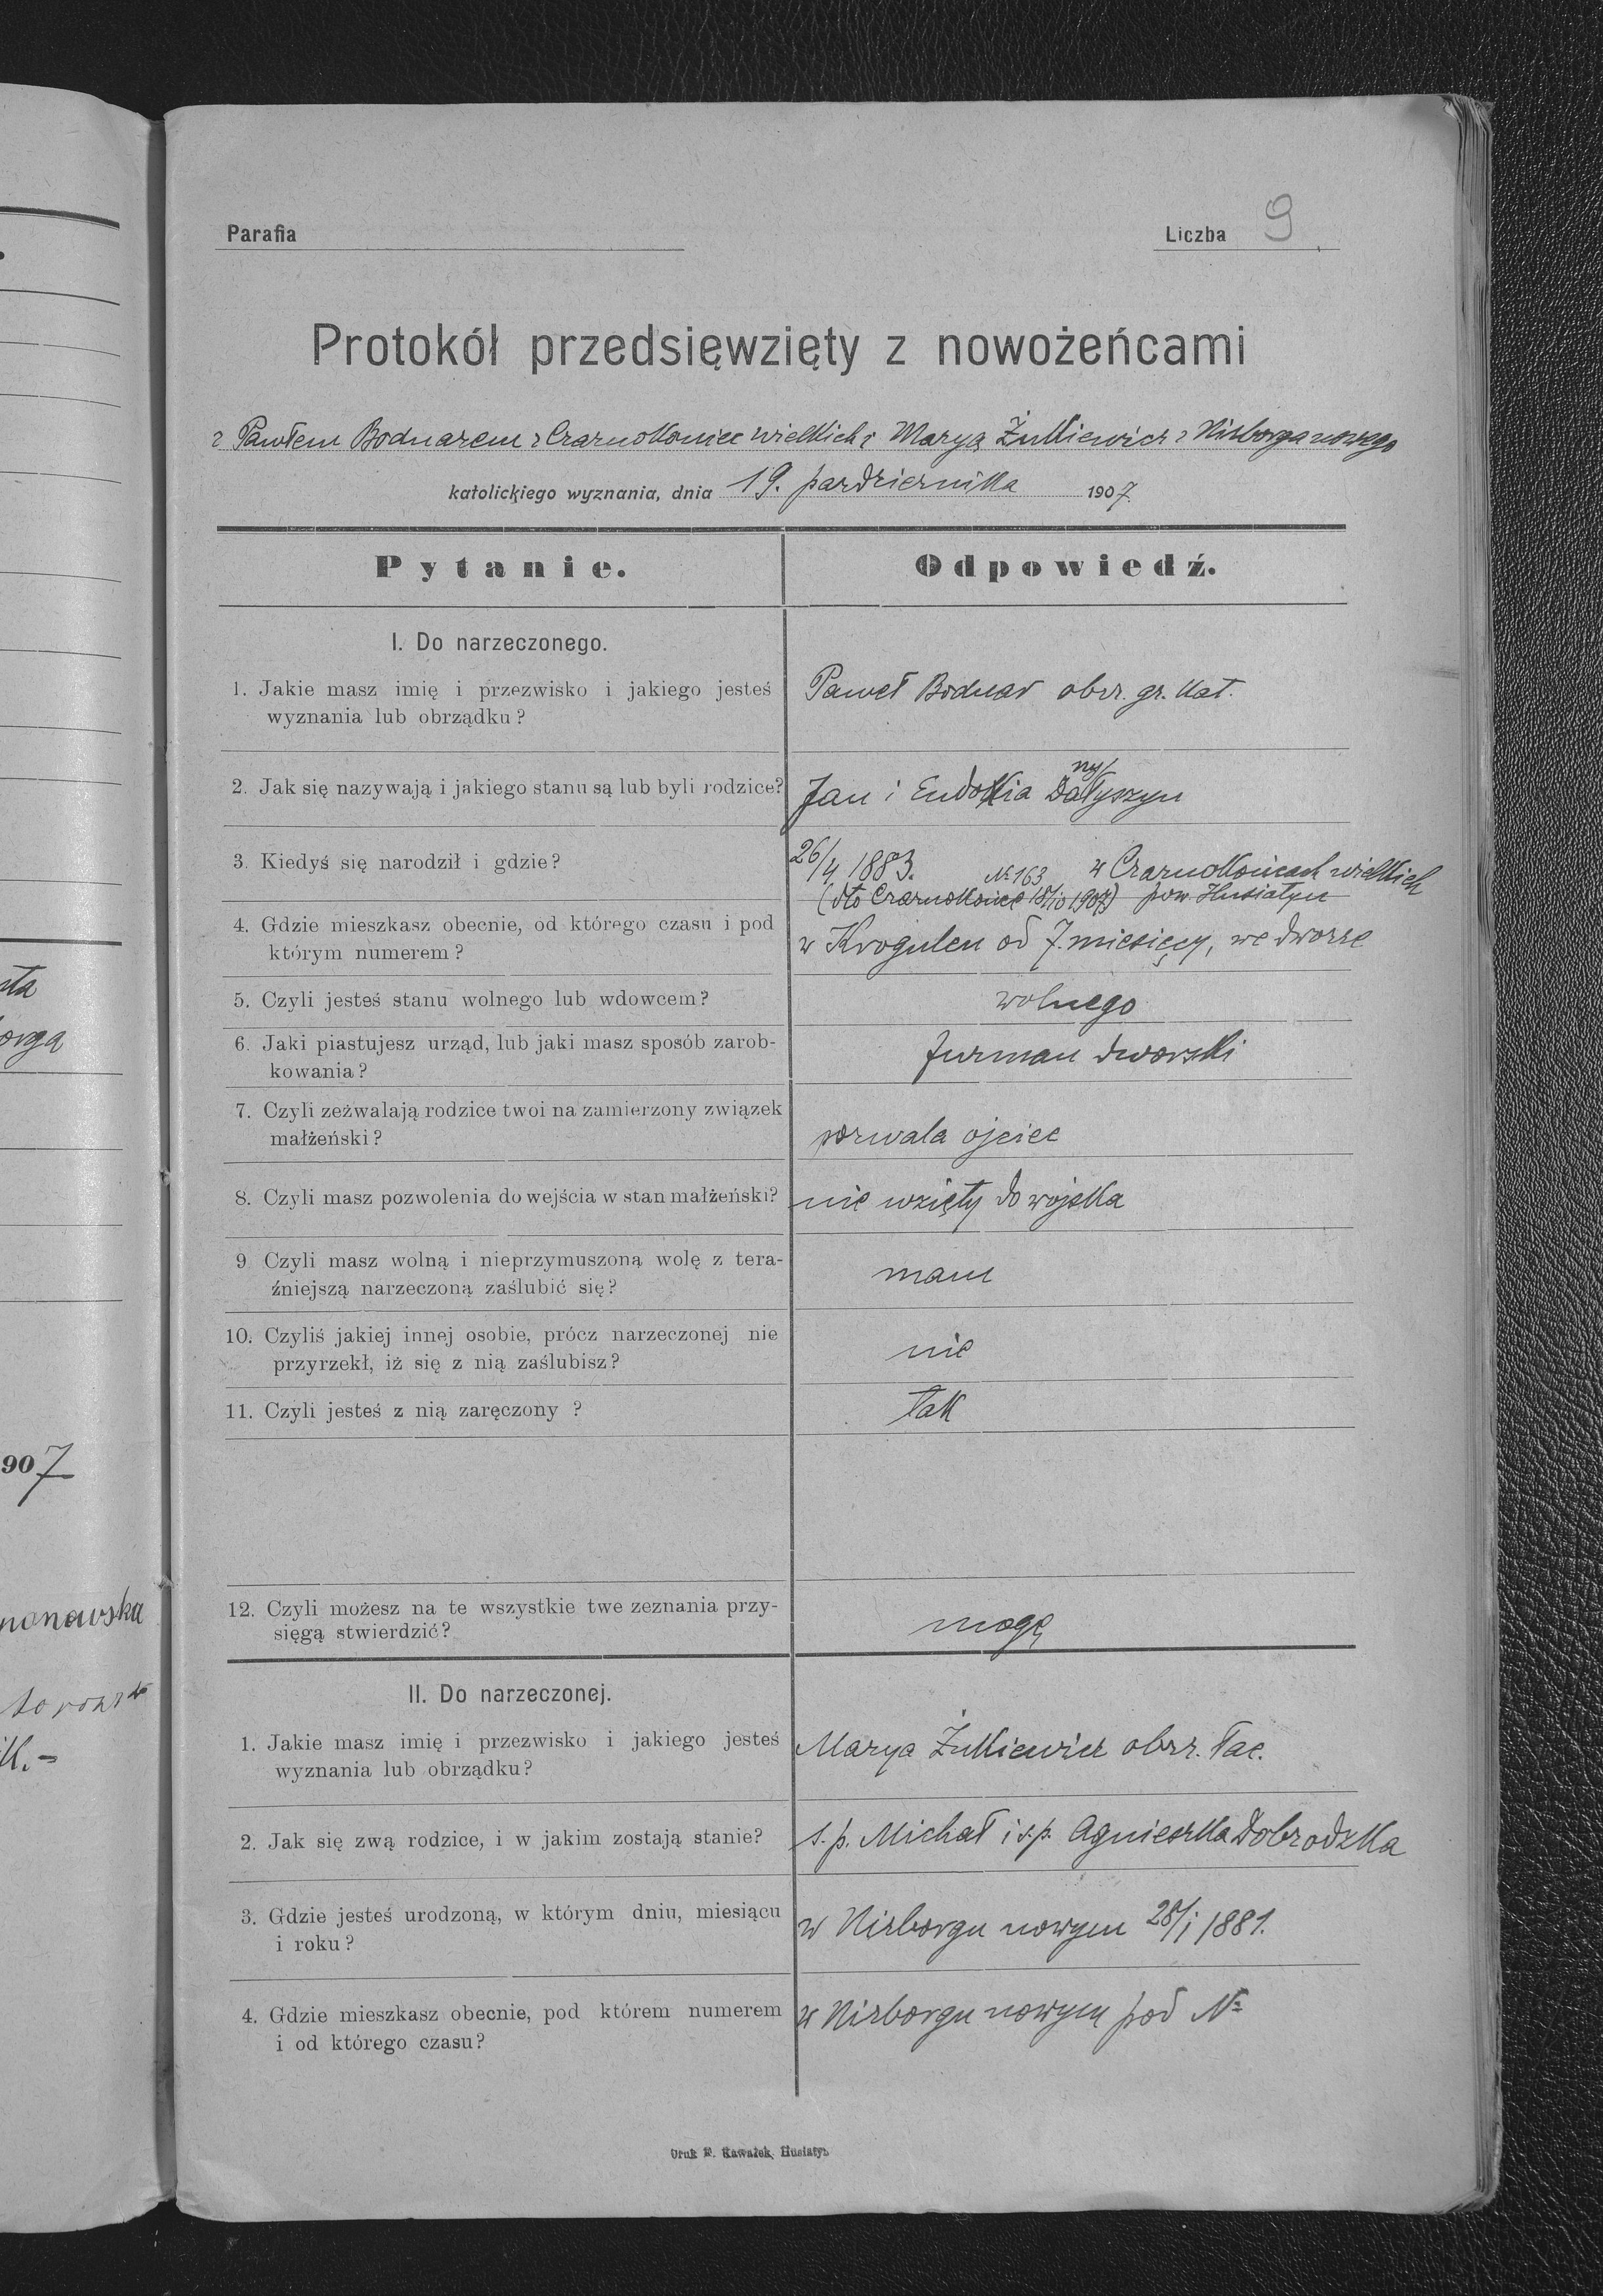 Parafia
Liczba 9
Protokół przedsięwzięty z nowożeńcami
z Pawłem Bodnarem z Czarnokoniec wielkich i Maryą Żulkiewicz z Nizborga nowego
katolickiego wyznania, dnia 19. pazdziernika 1907.
Pytanie.
Odpowiedź.
I. Do narzeczonego.
1. Jakie masz imię i przezwisko i jakiego jesteś
wyznania lub obrządku?
Paweł Bodnar obrz. gr. kat.
2. Jak się nazywają i jakiego stanu są lub byli rodzice?
Jan i Eudokia
3. Kiedyś się narodził i gdzie?
26/4 1883. w Czarnokońcach wielkich
(dto Czarnokońce 18/10 1907) № 163 pow Husiatyn
4. Gdzie mieszkasz obecnie, od którego czasu i pod
którym numerem?
w Krogulcu od 7. miesięcy, we dworze
5. Czyli jesteś stanu wolnego lub wdowcem?
wolnego
6. Jaki piastujesz urząd, lub jaki masz sposób zarob-
kowania?
furman dworski
7. Czyli zeżwalają rodzice twoi na zamierzony związek
małżeński?
pozwala ojciec
8. Czyli masz pozwolenia do wejścia w stan małżeński?
nie wzięty do wojska
9 Czyli masz wolną i nieprzymuszoną wolę z tera-
źniejszą narzeczoną zaślubić się?
mam
10. Czyliś jakiej innej osobie, prócz narzeczonej nie
przyrzekł, iż się z nią zaślubisz?
nie
11. Czyli jesteś z nią zaręczony ?
tak
12. Czyli możesz na te wszystkie twe zeznania przy-
sięgą stwierdzić?
mogę
II. Do narzeczonej.
1. Jakie masz imię i przezwisko i jakiego jesteś
wyznania lub obrządku?
Marya Żulkiewicz obrz. łac.
2. Jak się zwą rodzice, i w jakim zostają stanie?
s. p. Michał i s. p. Agnieszka Dobrodzka
3. Gdzie jesteś urodzoną, w którym dniu, miesiącu
i roku?
w Nizborgu nowym 28/I 1881.
4. Gdzie mieszkasz obecnie, pod którem numerem
i od którego czasu?
w Nizborgu nowym pod №
Druk F. Kawałek, Husiatyn
907